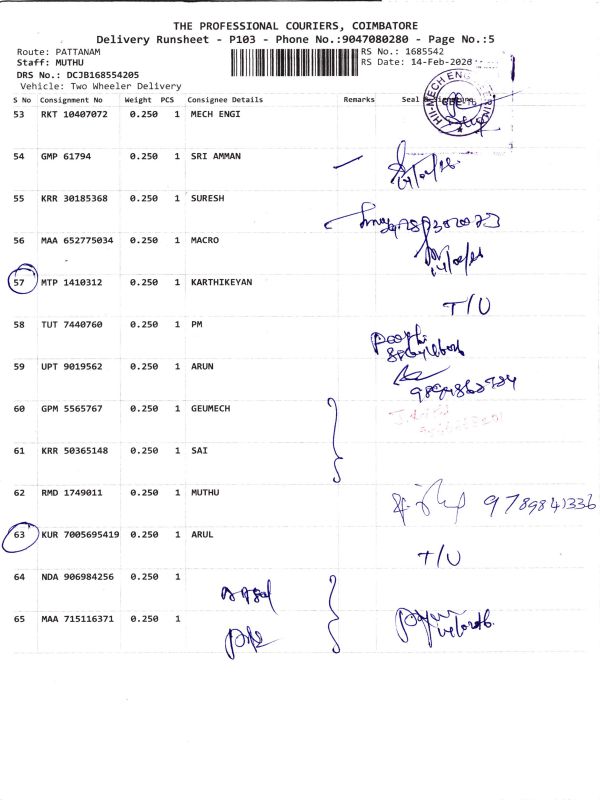 THE PROFESSIONAL COURIERS, COIMBATORE
Delivery Runsheet - P103 - Phone No.:9047080280 - Page No.:5
Route: PATTANAM RS No.: 1685542
Staff: MUTHU RS Date: 14-Feb-2020
DRS No.: DCJB168554205
Vehicle: Two Wheeler Delivery
S No Consignment No Weight PCS Consignee Details Remarks Seal
53 RKT 10407072 0.250 1 MECH ENGI
54 GMP 61794 0.250 1 SRI AMMAN
55 KRR 30185368 0.250 1 SURESH
56 MAA 652775034 0.250 1 MACRO
57 MTP 1410312 0.250 1 KARTHIKEYAN
T/U
58 TUT 7440760 0.250 1 PM
59 UPT 9019562 0.250 1 ARUN
60 GPM 5565767 0.250 1 GEUMECH
61 KRR 50365148 0.250 1 SAI
62 RMD 1749011 0.250 1 MUTHU 9789841336
63 KUR 7005695419 0.250 1 ARUL
T/U
64 NDA 906984256 0.250 1
65 MAA 715116371 0.250 1